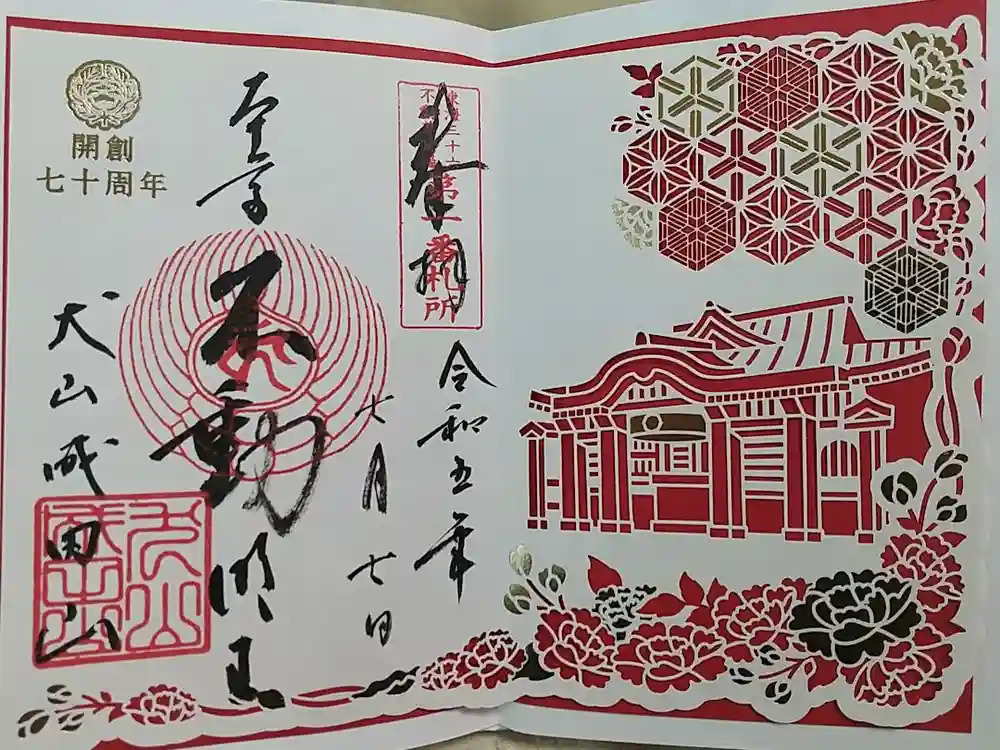 奉拝
東海三十六
不動
第一番札所
令和五年
七月七日
不動明王
開創
七十周年
犬山成田山